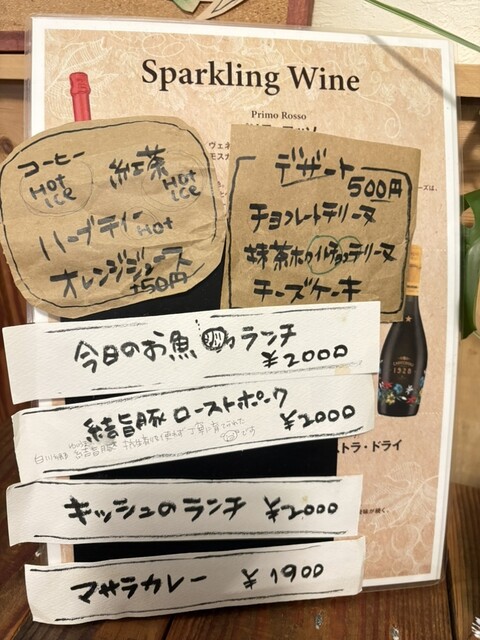 Sparkling Wine
Primo Rosso
コーヒー
Hot
Ice
紅茶
Hot
Ice
ハーブティー Hot
オレンジジュース
+50円
デザート
500円
チョコレートテリーヌ
抹茶ホワイトチョコテリーヌ
チーズケーキ
今日のお魚ランチ
¥2000
結旨豚 ローストポーク
¥2000
キッシュのランチ ¥2000
マサラカレー ¥1900
1928
ストラ・ドライ